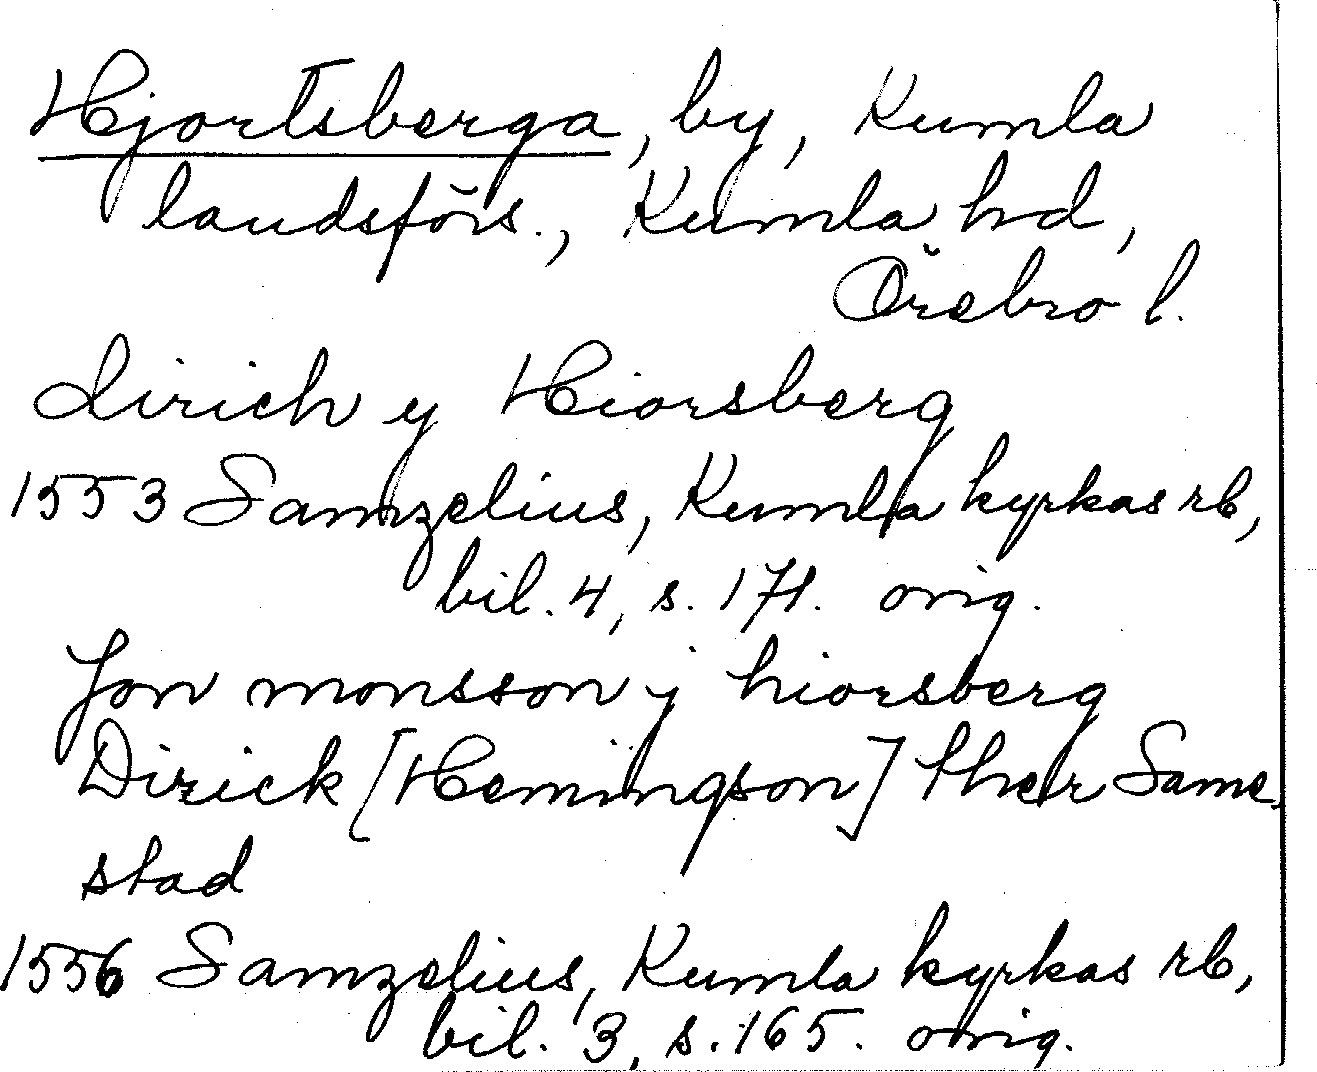 Hjortsberga, by, Kumla
landsförs., Kumla hd,
Örebro l.
dirich y Hiorsberg
1553 Samzelius, Kumla kyrkas rb,
bil. 4, s. 171. orig.
Jon monsson j hiorsberg
Dirick [Hemingson] ther Same
stad
1556 Samzelius, Kumla kyrkas rb,
bil. 3, s. 165. orig.